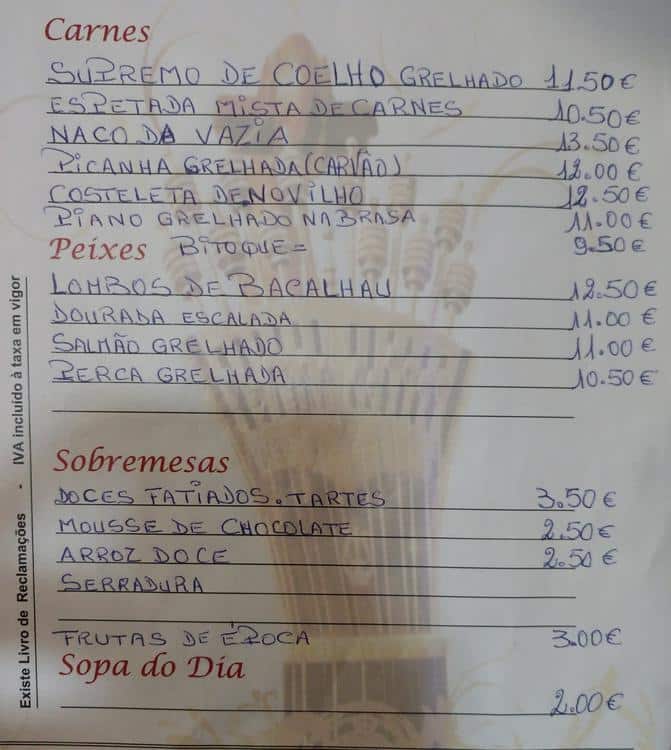 Carnes
SUPREMO DE COELHO GRELHADO 11.50€
ESPETADA MISTA DE CARNES 10.50€
NACO DA VAZIA 13.50€
PICANHA GRELHADA (CARVÃO) 12.00€
COSTELETA DE NOVILHO 12.50€
PIANO GRELHADO NA BRASA 11.00€
Peixes BITOQUE= 9.50€
LOMBOS DE BACALHAU 12.50€
DOURADA ESCALADA 11.00€
SALMÃO GRELHADO 11.00€
PERCA GRELHADA 10.50€
Sobremesas
DOCES FATIADOS. TARTES 3.50€
MOUSSE DE CHOCOLATE 2.50€
ARROZ DOCE 2.50€
SERRADURA
FRUTAS DE ÉPOCA 3.00€
Sopa do Dia
2.00€
Existe Livro de Reclamações - IVA incluído à taxa em vigor